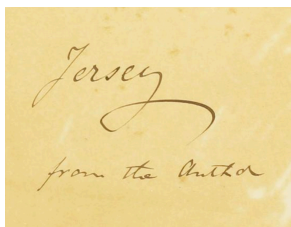 Jersey
from the Author